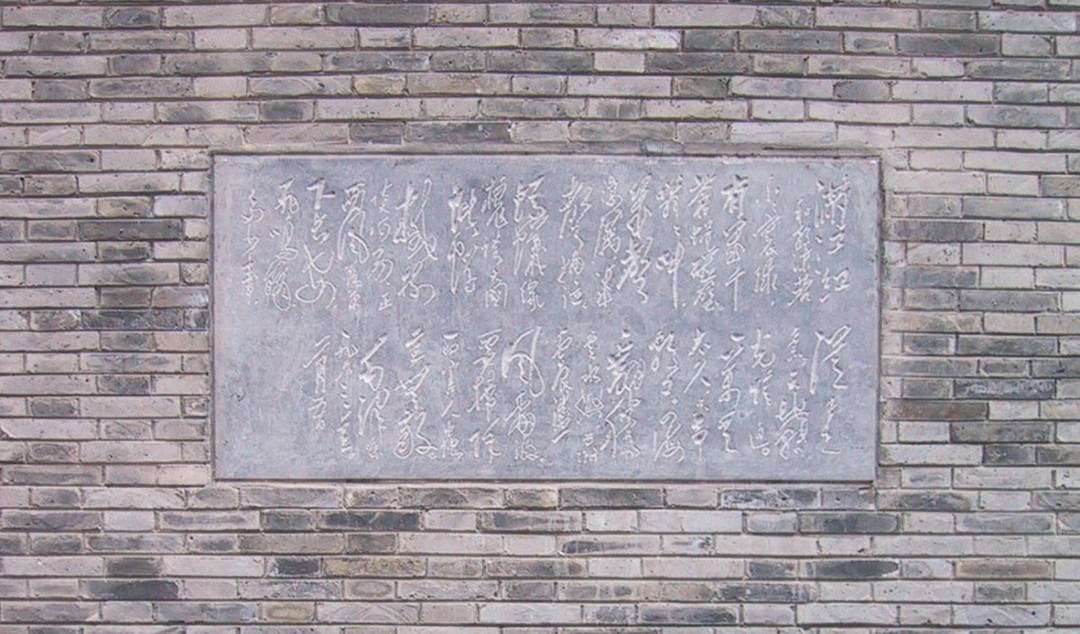 满江红
和郭沫若
小小寰球
有几个
苍蝇碰壁
嗡嗡叫
几声
凄厉几声
抽泣
蚂蚁缘
槐夸大国
蚍蜉
撼树
谈何易正
西风落叶
下长安
飞鸣镝
多少事
从来急
天地转
光阴迫
一万年
太久只争
朝夕四海
翻腾
云水怒五洲
震荡
风雷激
要扫除
一切害人虫
全无敌
毛泽东
一九六三年
一月九日